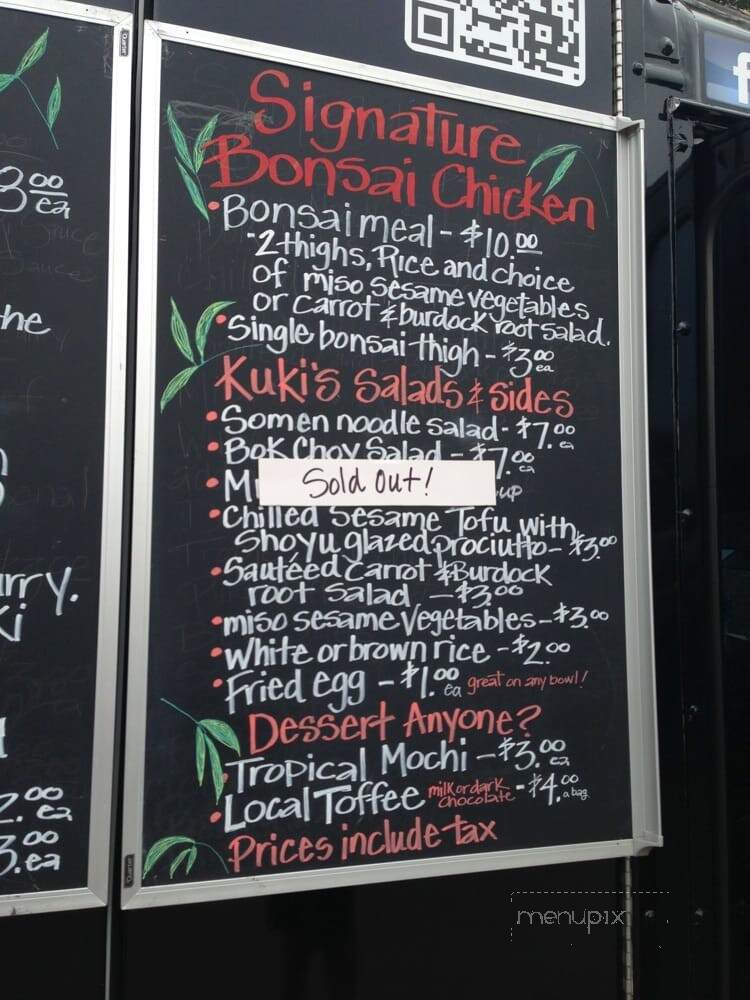 Signature
Bonsai Chicken
• Bonsai meal - $10.00
- 2 thighs, Rice and choice
of miso sesame vegetables
or carrot & burdock root salad.
• Single bonsai thigh - $3.00 ea
Kuki's Salads & Sides
• Somen noodle salad - $7.00 ea
• Bok Choy Salad - $7.00 ea
• M
Sold out!
• Chilled Sesame Tofu with
Shoyu glazed prociutto - $3.00
• Sautéed Carrot & Burdock
root Salad - $3.00
• miso sesame Vegetables - $3.00
• White or brown rice - $2.00
• Fried egg - $1.00 ea great on any bowl!
Dessert Anyone?
• Tropical Mochi - $3.00 ea
• Local Toffee milk or dark chocolate - $4.00 a bag
Prices include tax
3.00 ea
the
urry.
ki
2.00 ea
3.00 ea
Quartet
Quartet
f
menupix